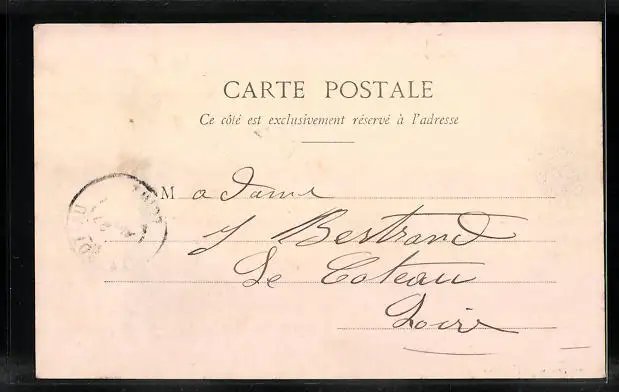 CARTE POSTALE
Ce côté est exclusivement réservé à l'adresse
Madame
J Bertrand
Le Coteau
Loire